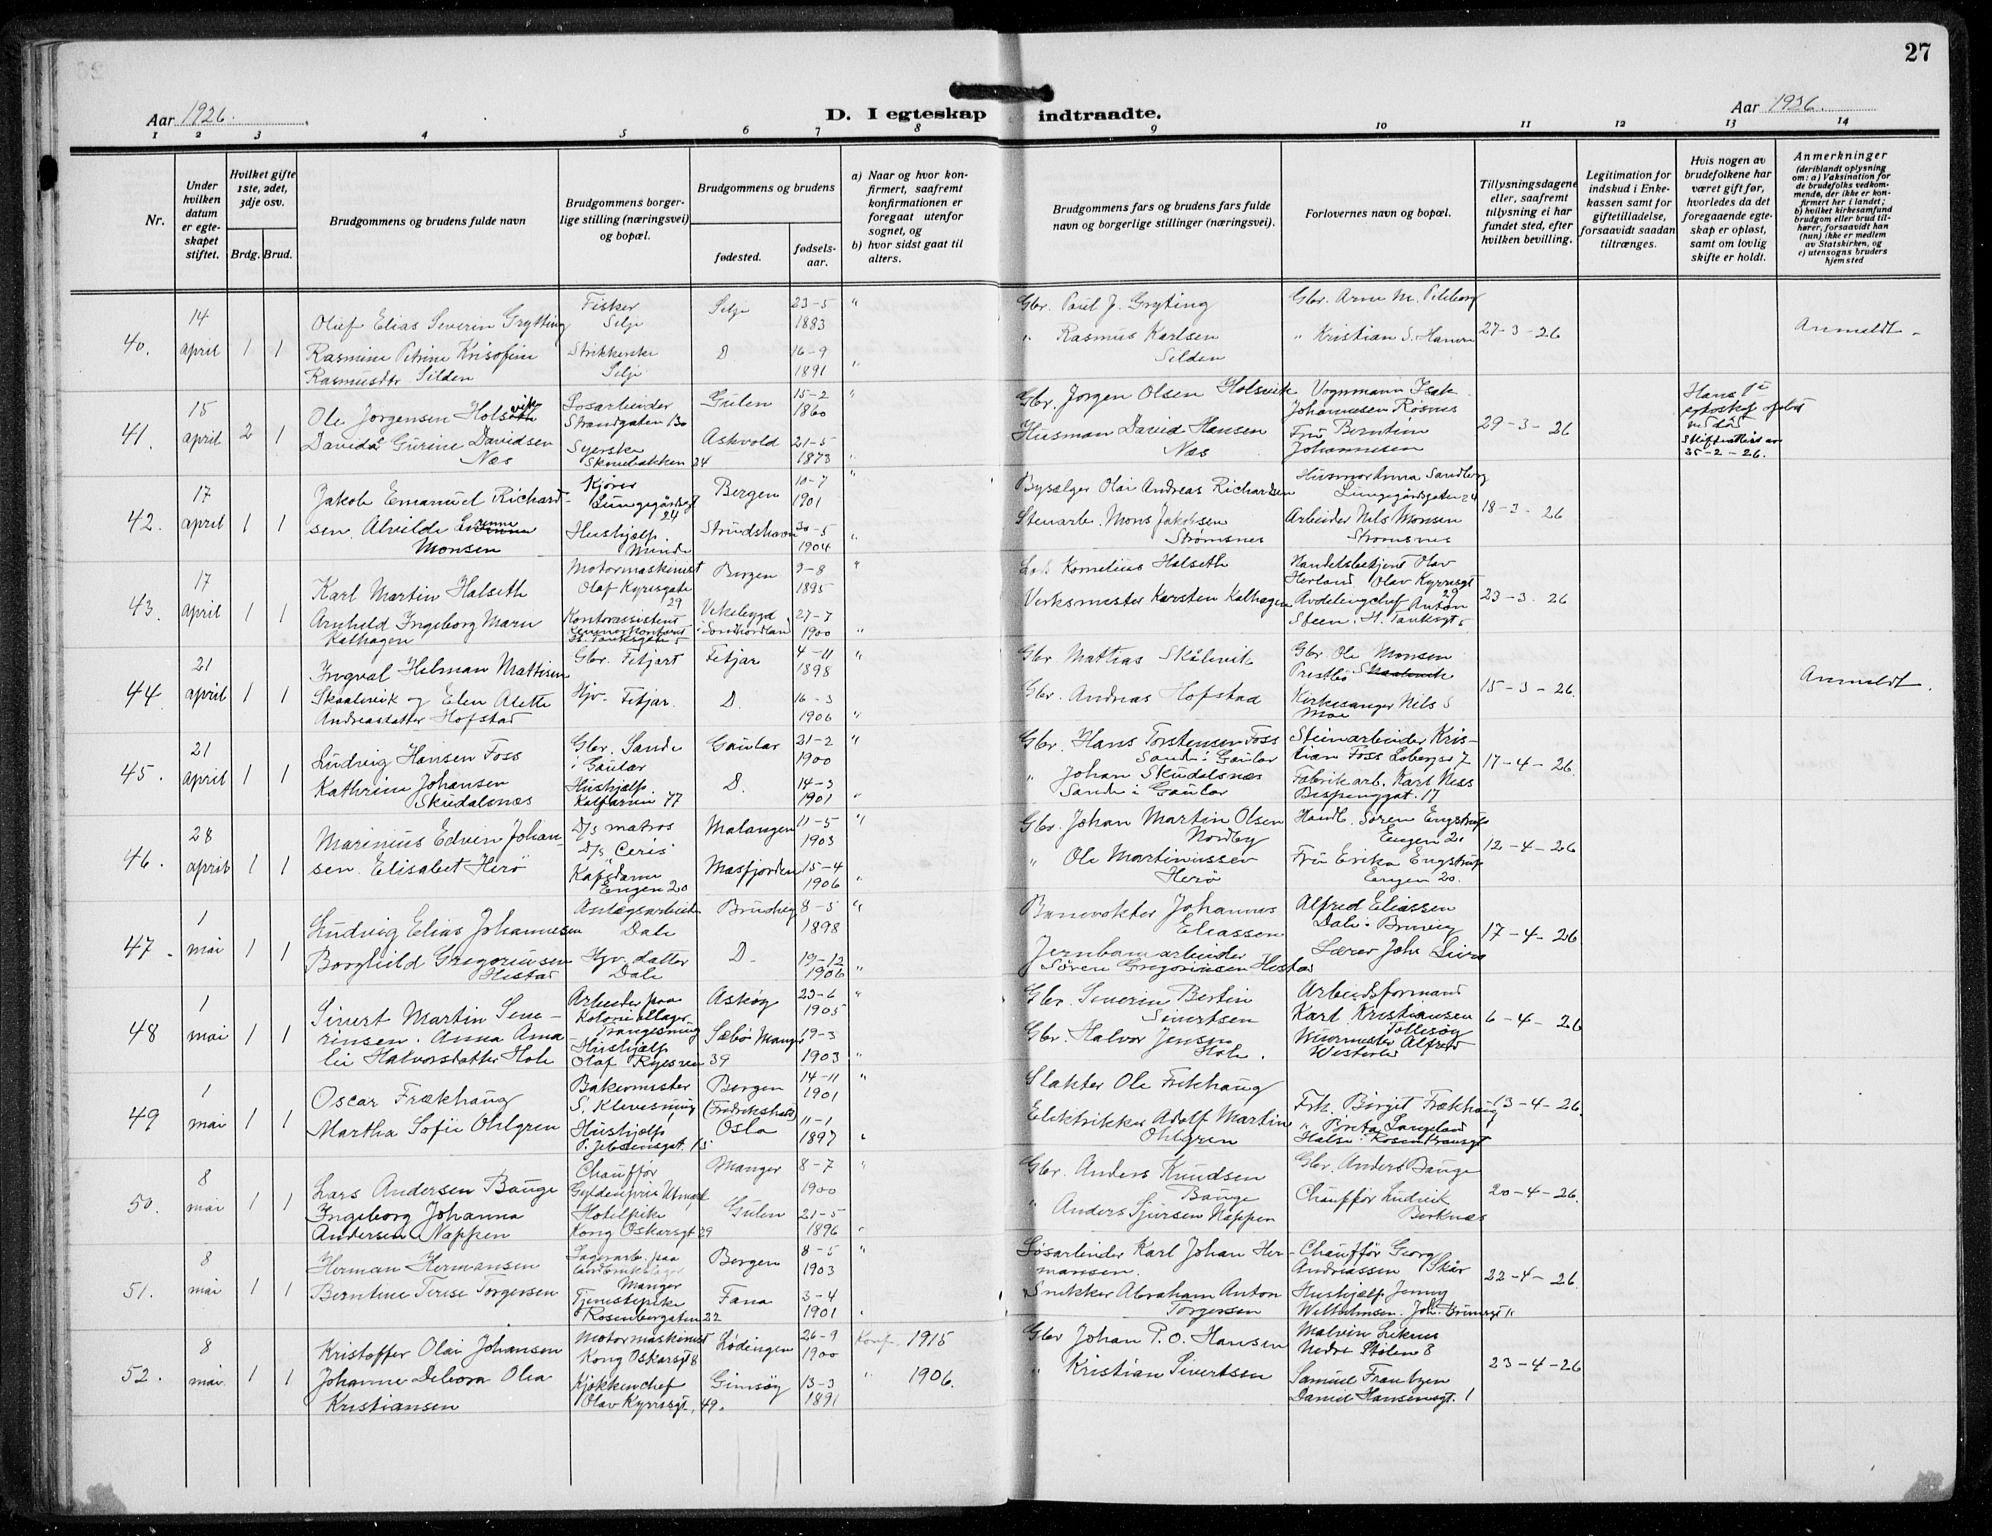 27
Aar 1926.
D. I egteskap indtraadte.
Aar 1926.
1 2 3 4 5 6 7 8 9 10 11 12 13 14
Nr.
Under hvilken datum er egteskapet stiftet.
Hvilket gifte 1ste, 2det, 3dje osv.
Brdg. Brud.
Brudgommens og brudens fulde navn
Brudgommens borgerlige stilling (næringsvei) og bopæl.
Brudgommens og brudens
fødested.
fødselsaar.
a) Naar og hvor konfirmert, saafremt konfirmationen er foregaat utenfor sognet, og
b) hvor sidst gaat til alters.
Brudgommens fars og brudens fars fulde navn og borgerlige stillinger (næringsvei).
Forlovernes navn og bopæl.
Tillysningsdagene eller, saafremt tillysning ei har fundet sted, efter hvilken bevilling.
Legitimation for indskud i Enkekassen samt for giftetilladelse, forsaavidt saadan tiltrænges.
Hvis nogen av brudefolkene har været gift før, hvorledes da det foregaaende egteskap er opløst, samt om lovlig skifte er holdt.
Anmerkninger
(deriblandt oplysning om: a) Vaksination for de brudefolks vedkommende, der ikke er konfirmert her i landet; b) hvilket kirkesamfund brudgom eller brud tilhører, forsaavidt han (hun) ikke er medlem av Statskirken, og c) utensogns bruders hjemsted
40. 14 april 1 1
Oluf Elias Severin Grytting
Rasmine Petrine Krisofine
Rasmusdtr Silden
Fisker
Selje
Strikkerske
Selje
Selje
D.
23-5
1883
16-9
1891
Gbr. Paul J. Gryting
" Rasmus Karlsen
Silden
Gbr. Arne M.
" Kristian S.
27-3-26
Anmeldt
41. 15 april 2 1
Ole Jørgensen Holsvik
Davida Gurine Davidsen
Næs
Løsarbeider
Strandgaten 130
Syerske
Skivebakken 24
Gulen
Askvold
15-2
1860
21-5
1873
Gbr. Jørgen Olsen Holsvik
Husman David Hansen
Næs
Vognmann Isak
Johannesen Rosnes
Fru Berntine
Johannesen
29-3-26
Hans 1ste
egteskap opløst
ved død
Skifteattest av
25-2-26.
42. 17 april 1 1
Jakob Emanuel Richard-
sen. Alvilde
Monsen
Kjører
Lungegårdsgt
24
Hushjælp.
Minde
Bergen
Strudshavn
10-7
1901
30-5
1904
Bysælger Olai Andreas Richardsen
Stenarb. Mons Jakobsen
Strømsnes
Husmor Anna Sandberg
Lungegårdsgaten 24
Arbeider Nils Monsen
Strømsnes
18-3-26
43. 17 april 1 1
Karl Martin Halseth
Arnhild Ingeborg Marie
Kalhagen
Motormaskinist
Olaf Kyrresgate
29
Kontorassistent
Bergen
Vikebygd
i Søndhordlan
9-8
1895
27-7
1900
Kornelius Halseth
Verksmester Karsten Kalhagen
Handelsbetjent Olav
Herland Olav Kyrresgt
29
Avdelingchef Anton
Steen. H. Tanksgt 5
23-3-26
44. 21 april 1 1
Ingval Hilman Mattisen
Skaalevik og Elen Alette
Andreasdatter Hofstad
Gbr. Fitjart
Hjv. Fitjar.
Fitjar
D.
4-11
1898
16-3
1906
Gbr Mathias Skålevik
Gbr. Andreas Hofstad
Gbr. Ole Monsen
Prestbø
Kirkesanger Nils S
Moe
15-3-26.
Anmeldt.
45. 21 april 1 1
Ludvig Hansen Foss
Kathrine Johansen
Skudalsnæs
Gbr. Sande
i Gaular
Hushjælp
Kalfarvei 77
Gaular
D.
21-2
1900
14-3
1901
Gbr. Hans Torstensen Foss
Sande i Gaular
" Johan Skudalsnæs
Sande i Gaular
Steinarbeider Kris-
tian Foss Lobergsv 7
Fabrikarb. Karl Ness
Bispenggat. 17
17-4-26.
46. 28 april 1 1
Marinius Edvin Johan-
sen. Elisabet Herø
D/s matros
D/s Ceres
Kafédame
Engen 20
Malangen
Masfjorden
11-5
1903
15-4
1906
Gbr. Johan Martin Olsen
Nordby
" Ole Martinussen
Herø
Handl. Søren Engstrøm
Engen 20
Fru Erika Engstrøm
Engen 20.
12-4-26
47. 1 mai 1 1
Ludvig Elias Johannesen
Borghild Gregoriusen
Hestad
Anlægsarbeider
Dale
Hjv. datter
Dale
Bruvig
D.
8-5
1898
19-12
1906
Banevokter Johannes
Eliassen
Jernbanearbeider
Søren Gregoriusen Hestad
Alfred Eliassen
Dale i Bruvig
Lærer Johs
17-4-26.
48. 1 mai 1 1
Sivert Martin Seve-
rinsen. Anna Ama-
lie Halvorsdatter Hole
Arbeider paa
Koloniallager
Hushjælp
Olaf Ryesvei 39
Askøy
Sæbø Manger
23-6
1905
19-3
1903
Gbr. Severin Bertin
Sivertsen
Gbr. Halvor Jensen
Hole.
Arbeidsformand
Karl Kristiansen
Murmester Alfred
6-4-26
49. 1 mai 1 1
Oscar Frækhaug
Martha Sofie Ohlgren
Bakermester
S. Klevesmug
Hushjælp
P. Jebsensgat. 15
Bergen
(Fredrikshald)
Oslo
14-11
1901
11-1
1897
Slakter Ole Frekhaug
Elektrikker Adolf Martin
Ohlgren
Frk. Birgit Frækhaug
" Breta Langeland
13-4-26.
50. 8 mai 1 1
Lars Andersen Bauge
Ingeborg Johanna
Andersen Nappen
Chauffør
Hotelpike
Kong Oskarsgt 29
Manger
Gulen
8-7
1900
21-5
1896
Gbr. Anders Knudsen
Bauge
" Anders Sjursen Nappen
Gbr. Anders Bauge
Chauffør Ludvik
Berknæs
20-4-26.
51. 8 mai 1 1
Herman Hermansen
Berntine Terese Torgersen
Lagerarb. paa
Manger
Tjenestepike
Rosenbergsaten 22
Bergen
Fana
8-5
1903
3-4
1901
Løsarbeider Karl Johan Her-
mansen.
Snikker Abraham Anton
Torgersen
Chauffør Georg
Andreassen Skår
Hushjælp Jenny
Wilhelmsen. Joh. Brunsgt 11
22-4-26.
52. 8 mai 1 1
Kristoffer Olai Johansen
Johanne Debora Olea
Kristiansen
Motormaskinist
Kong Oskarsgt 8
Kjøkkenchef
Olav Kyrresgt. 49.
Lødingen
Gimsøy
26-9
1900
13-3
1891
Konf. 1915
" 1906.
Gbr Johan P. O. Hansen
" Kristian Sivertsen
Malvin
Nedre Stølen 8
Samuel
Daniel Hansensgt. 1
23-4-26